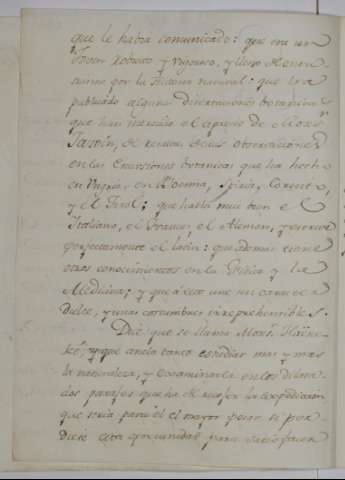 que le había comunicado: que era un
Joven robusto y vigoroso, y lleno de entu-
siasmo por la Historia natural: que tiene
publicado algunas disertaciones botanicas
que han merecido el aprecio de Mons.r
Jaquin, de resultas de sus observaciones
en las Excursiones botanicas que ha hecho
en Ungria, en Bohemia, Stiria, Corinto,
y el Tirol; que habla muy bien el
Italiano, el Frances, el Aleman, y escrive
perfectamente el latin: que ademas tiene
otros conocimientos en la Fisica y la
Medicina; y que á esto une un caracter
dulce, y unas costumbres irreprehensibles.
Dice que se llama Mons.r Haëne-
ké; que anela tanto estudiar mas y mas
la naturaleza, y examinarla en los dilata-
dos parajes que ha de correr la expedicion
que seria para él el mayor pesar si per-
diese esta oportunidad para satisfacer